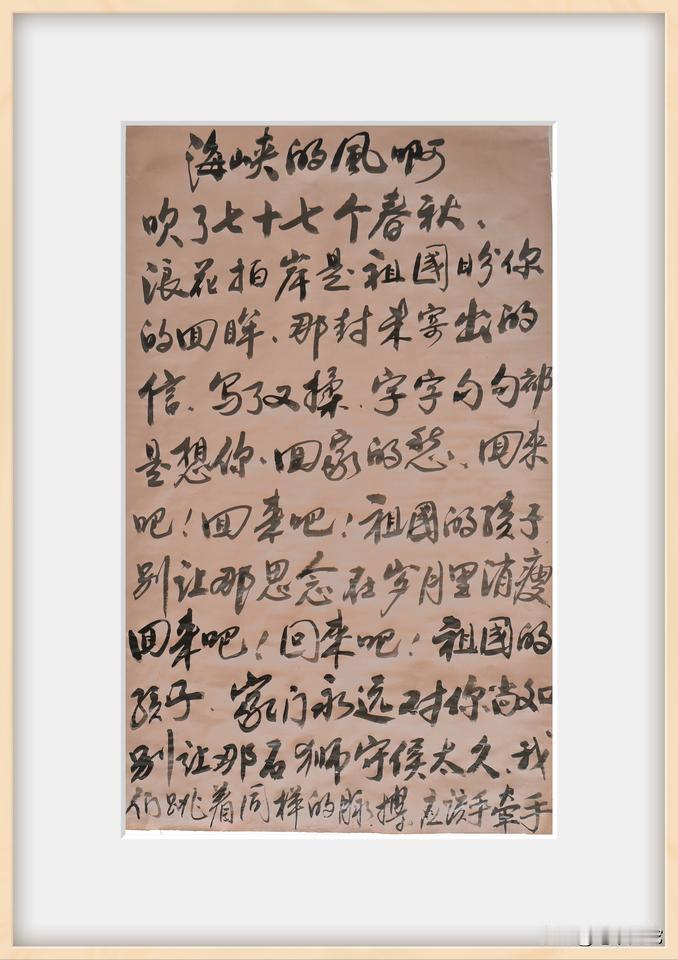 海峡的風啊
吹了七十七个春秋、
浪花拍岸是祖國盼你
的回眸.那封未寄出的
信.写了又揉.字字句句都
是想你.回家的愁、回来
吧!回来吧!祖國的孩子
别让那思念在岁月里消瘦
回来吧!回来吧!祖国的
孩子.家门永远对你尚如
别让那石狮守侯太久.我
们跳着同样的脉搏.应该手牵手